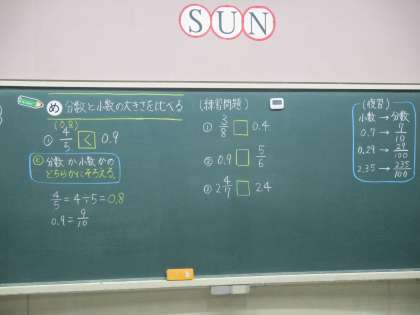 SUN
め 分数と小数の大きさを比べる
(0.8)
① 4/5 < 0.9
と 分数か小数かの
どちらかにそろえる。
4/5 = 4÷5 = 0.8
0.9 = 9/10
(練習問題)
① 3/8 □ 0.4
② 0.9 □ 5/6
③ 2 4/7 □ 2.4
(復習)
小数 → 分数
0.7 → 7/10
0.29 → 29/100
2.35 → 235/100